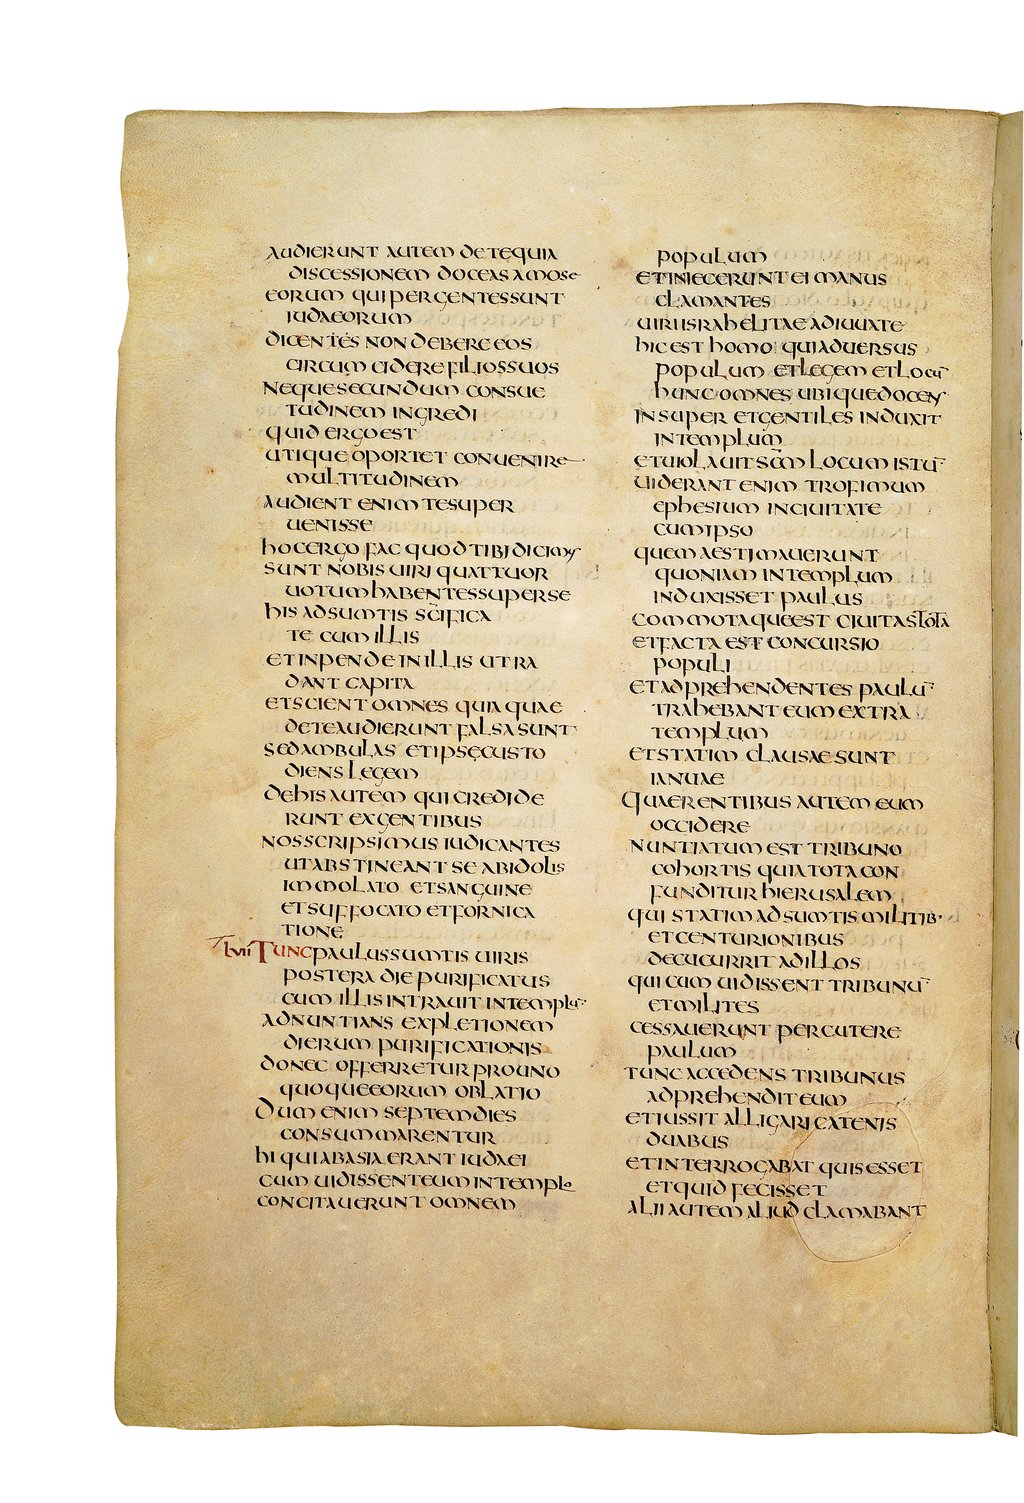 AUDIERUNT AUTEM DE TE QUIA
DISCESSIONEM DOCEAS A MOSE
EORUM QUI PER GENTES SUNT
IUDAEORUM
DICENTES NON DEBERE EOS
CIRCUMCIDERE FILIOS SUOS
NEQUE SECUNDUM CONSUE
TUDINEM INGREDI
QUID ERGO EST
UTIQUE OPORTET CONUENIRE
MULTITUDINEM
AUDIENT ENIM TE SUPER
UENISSE
HOC ERGO FAC QUOD TIBI DICIMUS
SUNT NOBIS UIRI QUATTUOR
UOTUM HABENTES SUPER SE
HIS ADSUMTIS SCIFICA
TE CUM ILLIS
ET INPENDE IN ILLIS UT RA
DANT CAPITA
ET SCIENT OMNES QUIA QUAE
DE TE AUDIERUNT FALSA SUNT
SED AMBULAS ET IPSE CUSTO
DIENS LEGEM
DE HIS AUTEM QUI CREDIDE
RUNT EX GENTIBUS
NOS SCRIPSIMUS IUDICANTES
UT ABSTINEANT SE AB IDOLIS
IMMOLATO ET SANGUINE
ET SUFFOCATO ET FORNICA
TIONE
LVII TUNC PAULUS SUMTIS UIRIS
POSTERA DIE PURIFICATUS
CUM ILLIS INTRAUIT IN TEMPLŪ
ADNUNTIANS EXPLETIONEM
DIERUM PURIFICATIONIS
DONEC OFFERRETUR PRO UNO
QUOQUE EORUM OBLATIO
DUM ENIM SEPTEM DIES
CONSUMMARENTUR
HI QUI AB ASIA ERANT IUDAEI
CUM UIDISSENT EUM IN TEMPLO
CONCITAUERUNT OMNEM
POPULUM
ET INIECERUNT EI MANUS
CLAMANTES
UIRI ISRAHELITAE ADIUUATE
HIC EST HOMO QUI ADUERSUS
POPULUM ET LEGEM ET LOCŪ
HUNC OMNES UBIQUE DOCENS
INSUPER ET GENTILES INDUXIT
IN TEMPLUM
ET UIOLAUIT SCM̄ LOCUM ISTŪ
UIDERANT ENIM TROFIMUM
EPHESIUM IN CIUITATE
CUM IPSO
QUEM AESTIMAUERUNT
QUONIAM IN TEMPLUM
INDUXISSET PAULUS
COMMOTAQUE EST CIUITAS TOTA
ET FACTA EST CONCURSIO
POPULI
ET ADPREHENDENTES PAULŪ
TRAHEBANT EUM EXTRA
TEMPLUM
ET STATIM CLAUSAE SUNT
IANUAE
QUAERENTIBUS AUTEM EUM
OCCIDERE
NUNTIATUM EST TRIBUNO
COHORTIS QUIA TOTA CON
FUNDITUR HIERUSALEM
QUI STATIM ADSUMTIS MILITIB·
ET CENTURIONIBUS
DECUCURRIT AD ILLOS
QUI CUM UIDISSENT TRIBUNŪ
ET MILITES
CESSAUERUNT PERCUTERE
PAULUM
TUNC ACCEDENS TRIBUNUS
ADPREHENDIT EUM
ET IUSSIT ALLIGARI CATENIS
DUABUS
ET INTERROGABAT QUIS ESSET
ET QUID FECISSET
ALII AUTEM ALIUD CLAMABANT